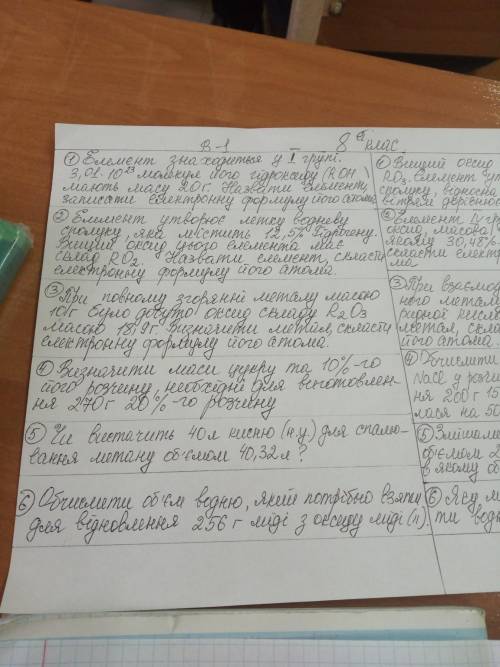 В-1 – 8 клас
① Елемент знаходиться у I групі.
3,01·10²³ молекул його гідроксиду (ROH)
мають масу 20 г. Назвати елемент,
записати електронну формулу його атома.
② Елемент утворює летку водневу
сполуку, яка містить 12,5% Гідрогену.
Вищий оксид цього елемента має
склад RO₂. Назвати елемент, скласти
електронну формулу його атома.
③ При повному згорянні металу масою
10 г було добуто оксид складу R₂O₃
масою 18,9 г. Визначити метал, скласти
електронну формулу його атома.
④ Визначити маси цукру та 10%-го
його розчину, необхідні для виготовлен-
ня 270 г 20%-го розчину
⑤ Чи вистачить 40 л кисню (н.у) для спалю-
вання метану об'ємом 40,32 л?
⑥ Обчислити об'єм водню, який потрібно взяти
для відновлення 256 г міді з оксиду міді (II).
① Вищий оксид
RO₃. Елемент ут
сполуку, відносна
② Елемент IV гр
оксид, масова
якому 30,48%
скласти електр
ма
③ При взаємод
ного метал
ридної кисло
метал, скла
його атома.
④ Обчислити
NaCl у розчи
ня 200 г 15
лася на 50
⑤ Змішали
об'ємом 2
в якому об
⑥ Яку м
ти водн